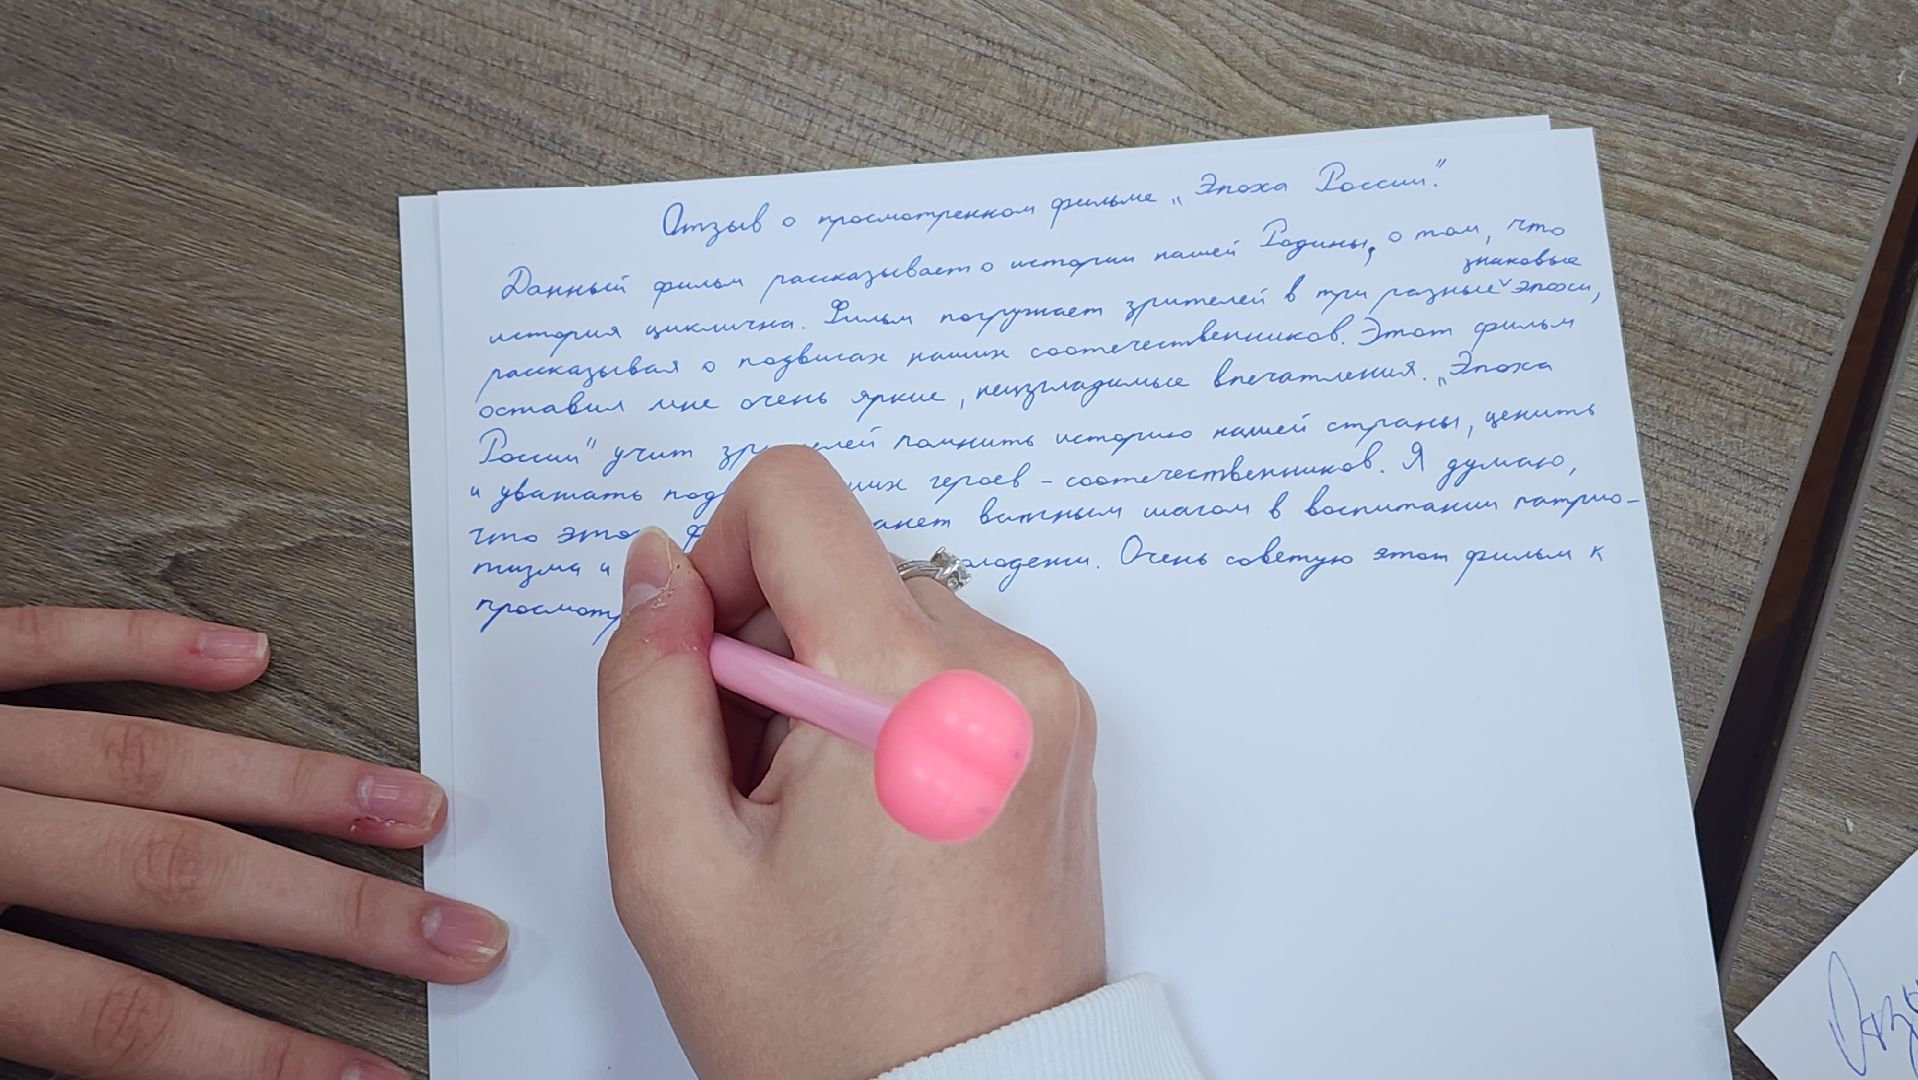 Отзыв о просмотренном фильме „Эпоха России".
Данный фильм рассказывает о истории нашей Родины, о том, что
знаковые
история циклична. Фильм погружает зрителей в три разные ˅ эпохи,
рассказывая о подвигах наших соотечественников. Этот фильм
оставил мне очень яркие, неизгладимые впечатления. „Эпоха
России" учит зрителей помнить историю нашей страны, ценить
и уважать героев - соотечественников. Я думаю,
что этот важным шагом в воспитании патрио-
тизма и Очень советую этот фильм к